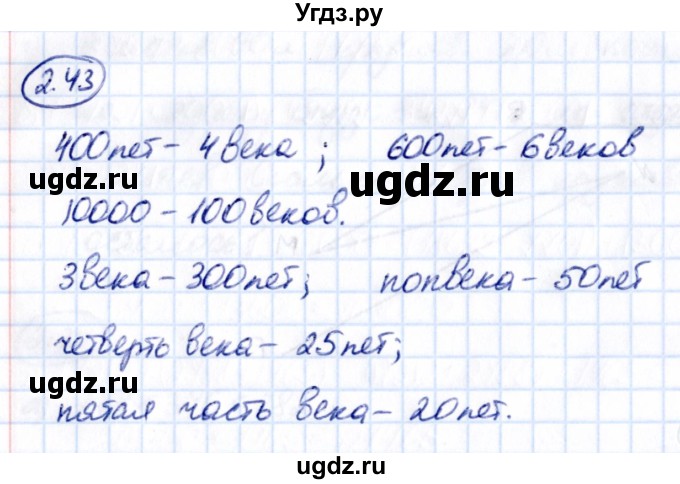 Угдз.ру
2.43
400лет – 4 века ; 600лет – 6 веков
ugdz.ru ugdz.ru
10000 – 100 веков.
3 века – 300 лет; полвека – 50 лет
ugdz.ru
четверть века – 25 лет;
ugdz.ru
пятая часть века – 20 лет.
ugdz.ru